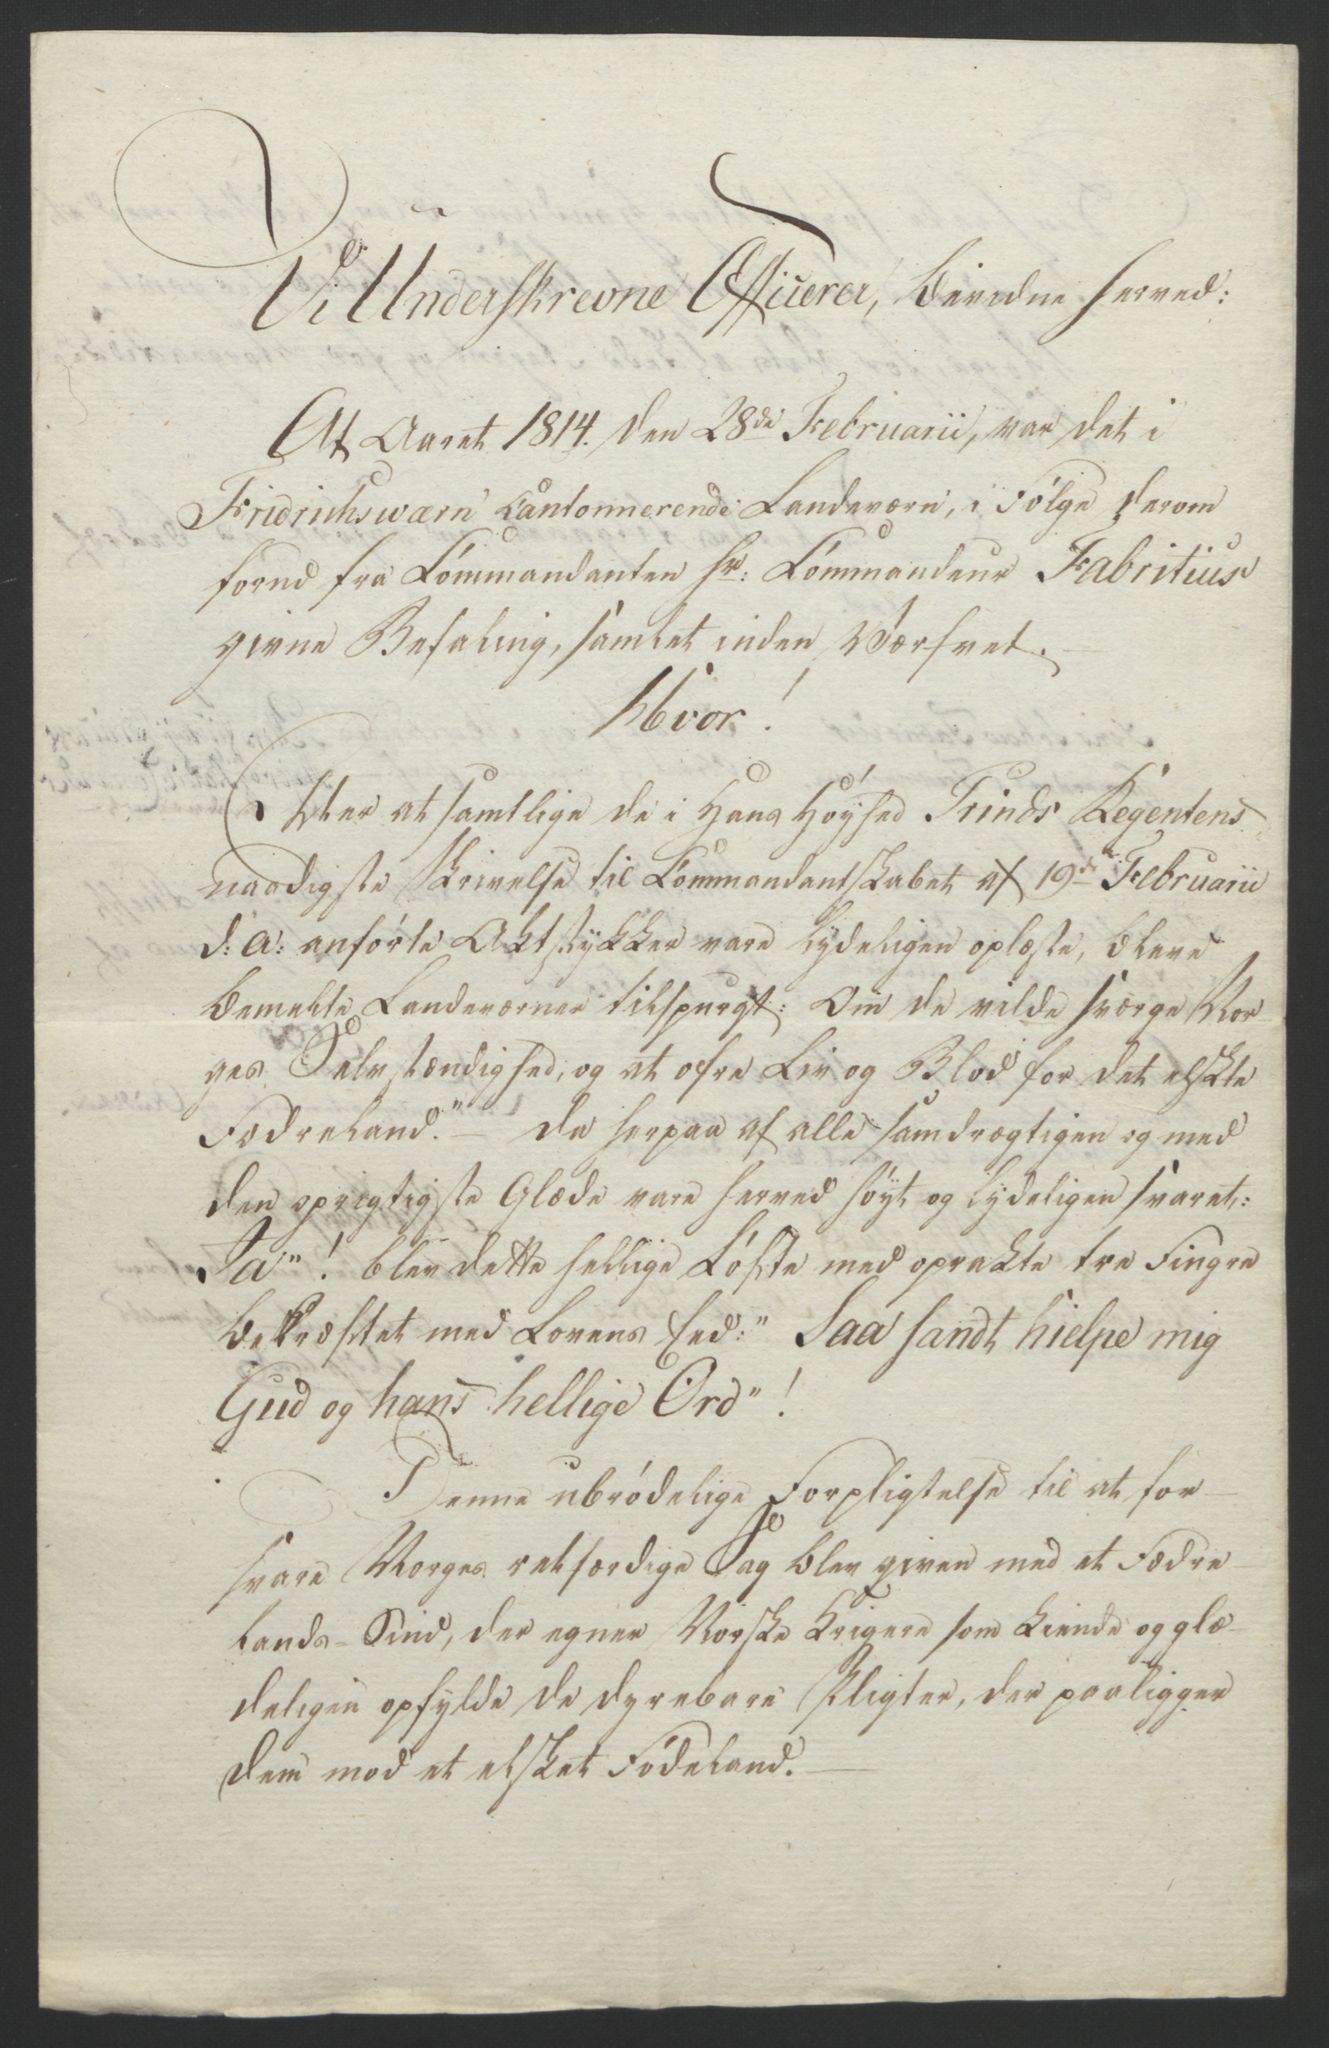 Vi Underskrevne Officerer, bevidne herved:
At Aaret 1814. den 28de Februarii, var det i
Fridrichsværn Cantonnerende Landeværn, i Følge derom
forud fra Commandanten Hr: Commandeur Fabritius
givne Befaling, samlet inden Værfvet. —
Hvor!
Efter at samtlige de i Hans Høyhed Prinds Regentens
naadigste Skrivelse til Commandantskabet af 19de Februarii
d: a: anførte Aktstykker vare tydeligen oplæste, bleve
bemelte Landeværner tilspurgt: Om de vilde sværge Nor
ges Selvstændighed, og at ofre Liv og Blod for det elskte
Fædreland." — da herpaa af alle samdrægtigen og med
den oprigtigste Glæde vare herved høyt og tydeligen svaret:
Ja"! blev dette hellige Løfte med oprakte tre Fingre
bekræftet med Lovens Eed:" Saa sandt hielpe mig
Gud og hans hellige Ord"!
Denne ubrødelige Forpligtelse til at for-
svare Norges retfærdige Sag blev given med et Fædre
lands-Sind, der egner Norske Krigere som kiende og glæ-
deligen opfylde de dyrebare Pligter, der paaligger
dem mod et elsket Fødeland. —